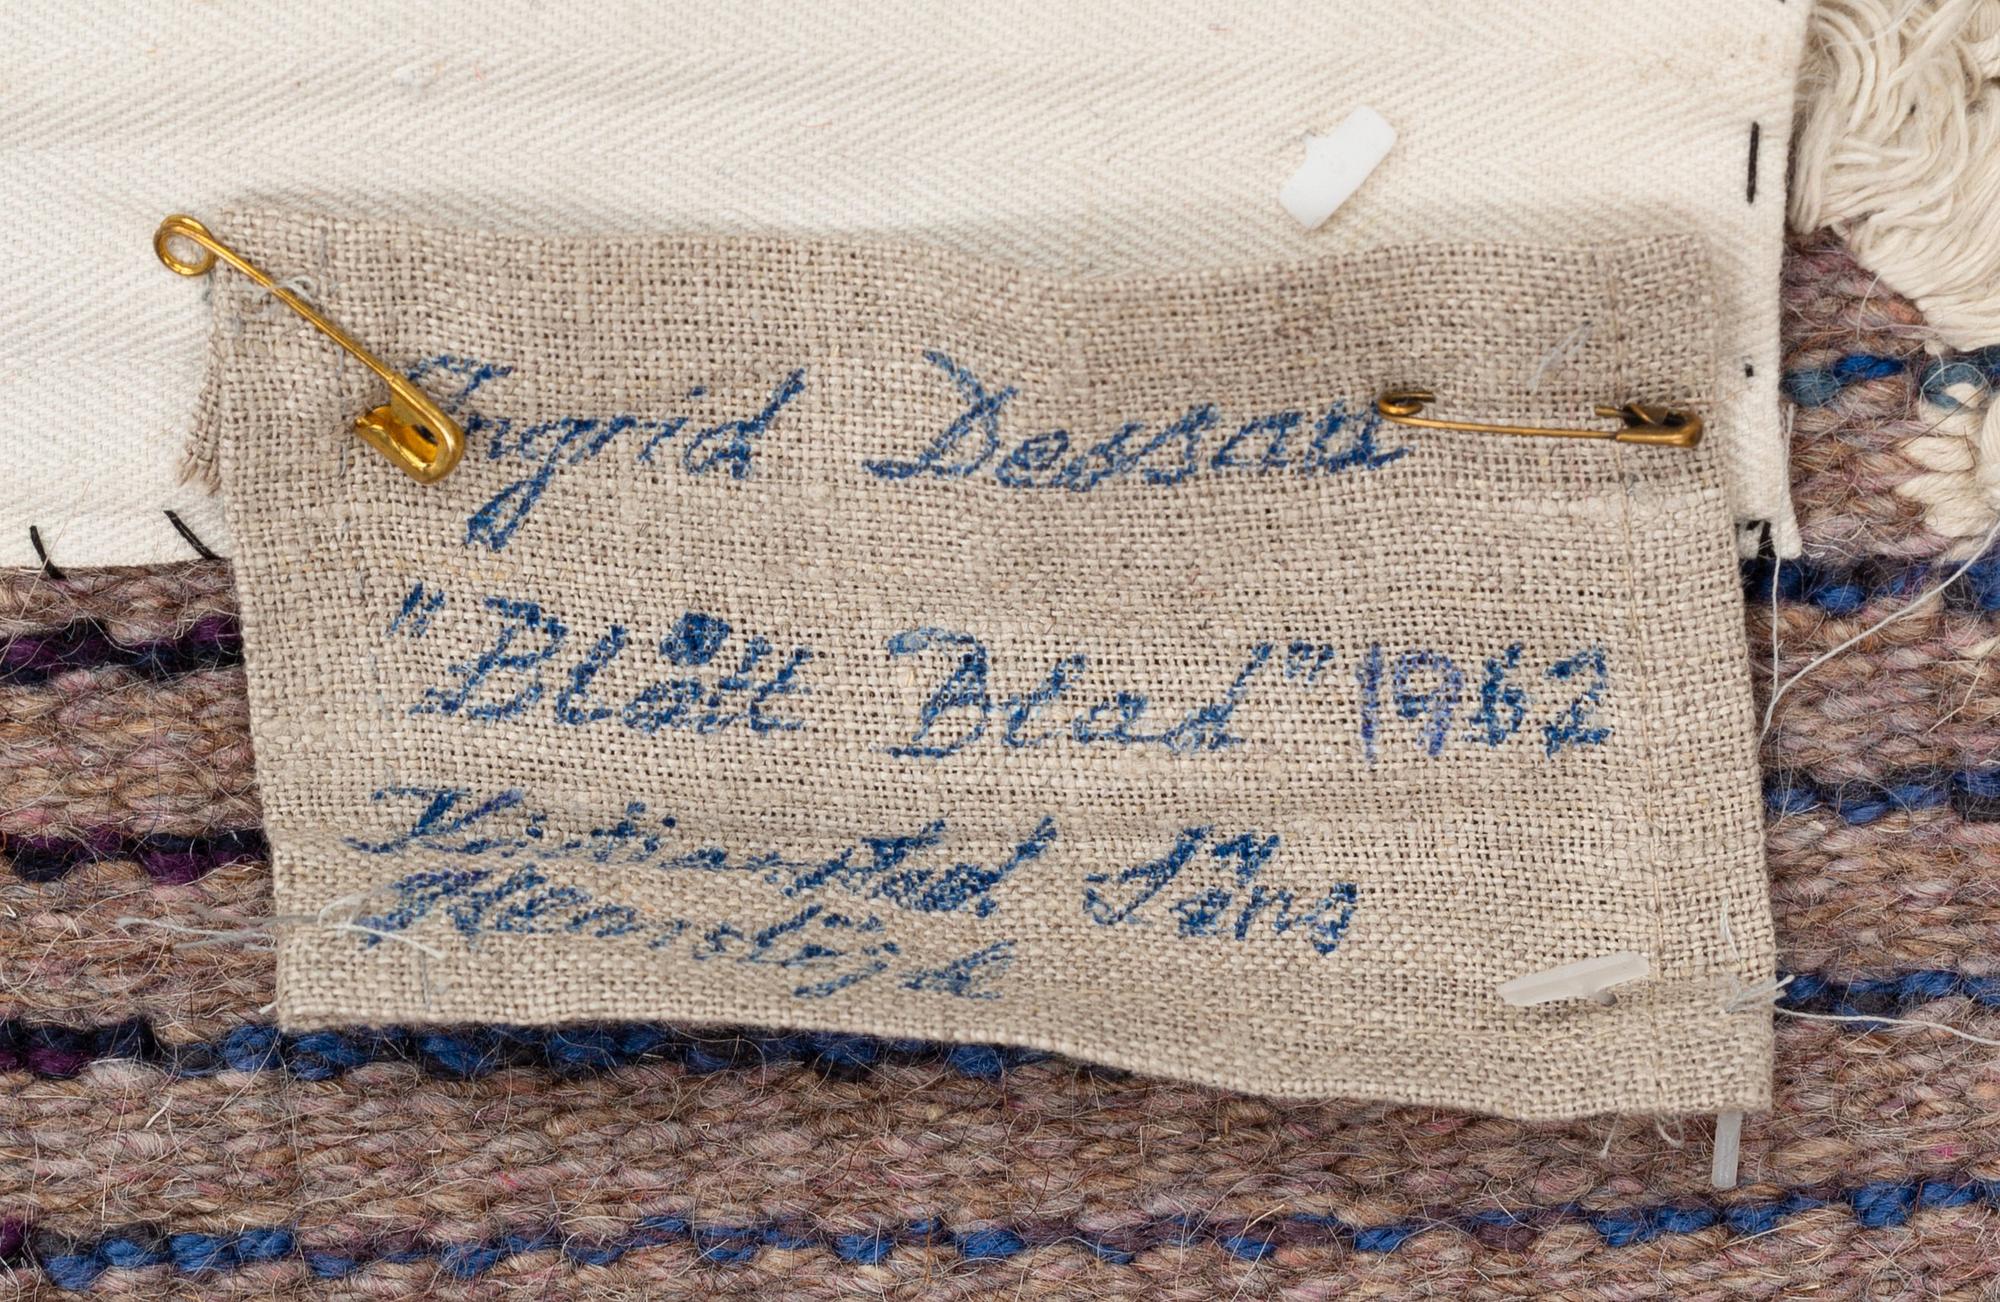 Ingrid Dessau
"Blått Blad" 1962
Kristianstad Läns
Hemslöjd